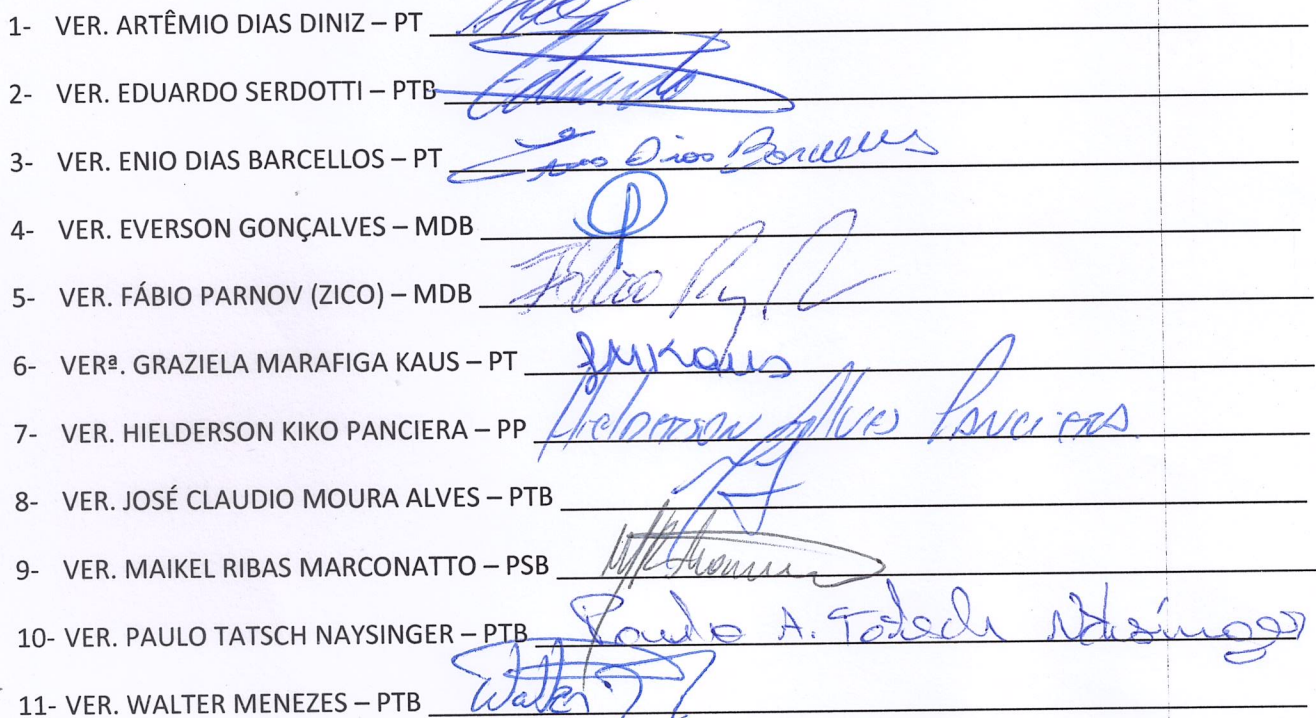 1- VER. ARTÊMIO DIAS DINIZ – PT
2- VER. EDUARDO SERDOTTI – PTB Eduardo
3- VER. ENIO DIAS BARCELLOS – PT Enio Dias Barcellos
4- VER. EVERSON GONÇALVES – MDB
5- VER. FÁBIO PARNOV (ZICO) – MDB Fábio
6- VERª. GRAZIELA MARAFIGA KAUS – PT GMKaus
7- VER. HIELDERSON KIKO PANCIERA – PP Hielderson Alves Panciera
8- VER. JOSÉ CLAUDIO MOURA ALVES – PTB
9- VER. MAIKEL RIBAS MARCONATTO – PSB
10- VER. PAULO TATSCH NAYSINGER – PTB Paulo A. Tatsch Naisinger
11- VER. WALTER MENEZES – PTB Walter